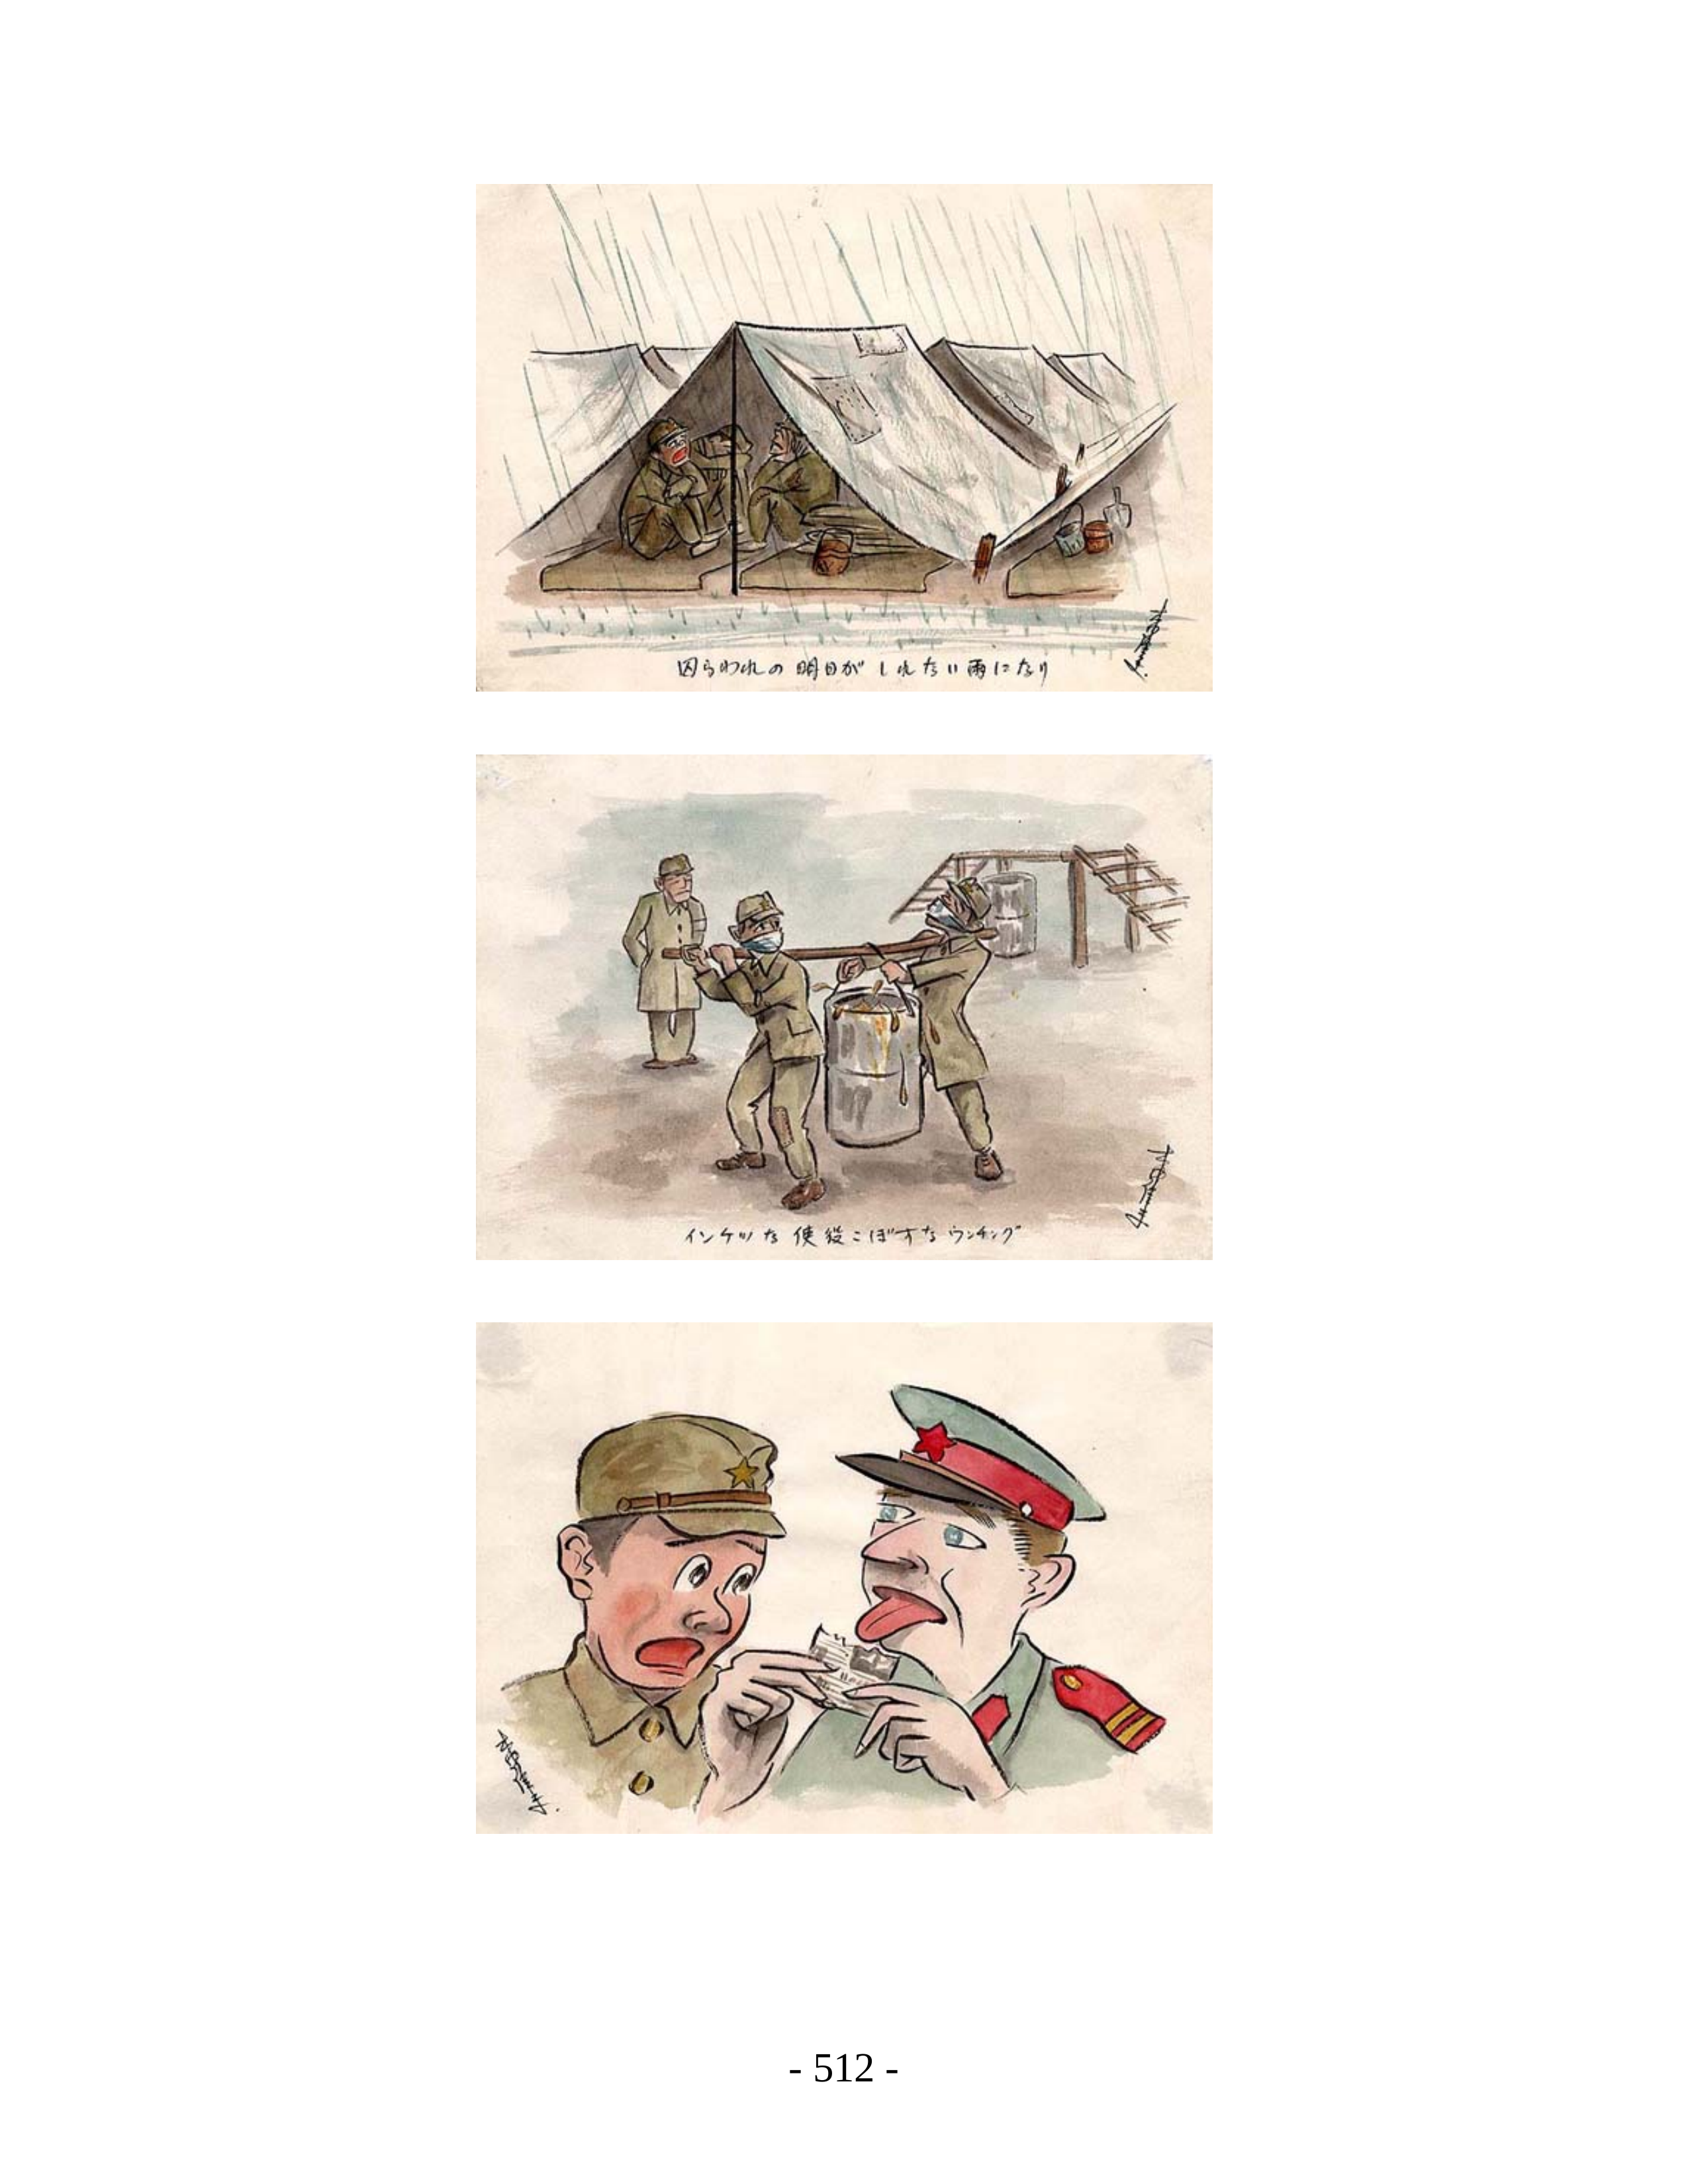 囚らわれの 明日が しれない雨になり
インケツな 使役こぼすな ウンチング
- 512 -